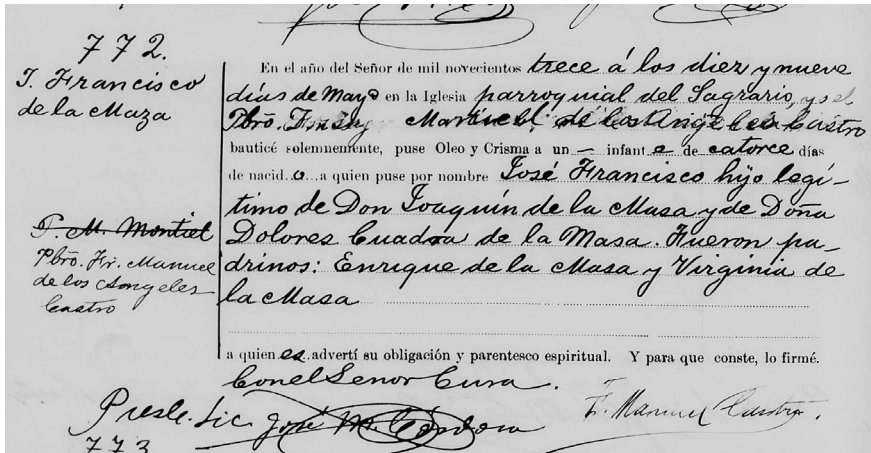 772.
J. Francisco
de la Maza
P. M. Montiel
Pbro. Fr. Manuel
de los Angeles
Castro
En el año del Señor de mil novecientos trece á los diez y nueve
días de Mayo en la Iglesia parroquial del Sagrario, yo el
Pbro. Fray Manuel de los Angeles Castro
bauticé solemnemente, puse Oleo y Crisma a un — infante de catorce días
de nacido a quien puse por nombre José Francisco hijo legí-
timo de Don Joaquín de la Masa y de Doña
Dolores Cuadra de la Masa. Fueron pa-
drinos: Enrique de la Masa y Virginia de
la Masa
a quienes advertí su obligación y parentesco espiritual. Y para que conste, lo firmé.
Con el Senor Cura.
Presb. Lic. José M. Córdova
F. Manuel Castro.
773